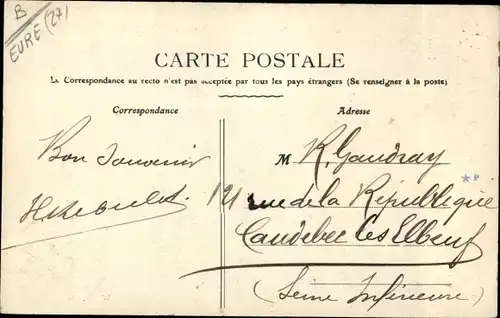 B
EURE (27)
CARTE POSTALE
La Correspondance au recto n'est pas acceptée par tous les pays étrangers (Se renseigner à la poste)
Correspondance
Adresse
Bon Souvenir
M R. Gaudray
121 rue de la République
Caudebec les Elbeuf
(Seine Inférieure)